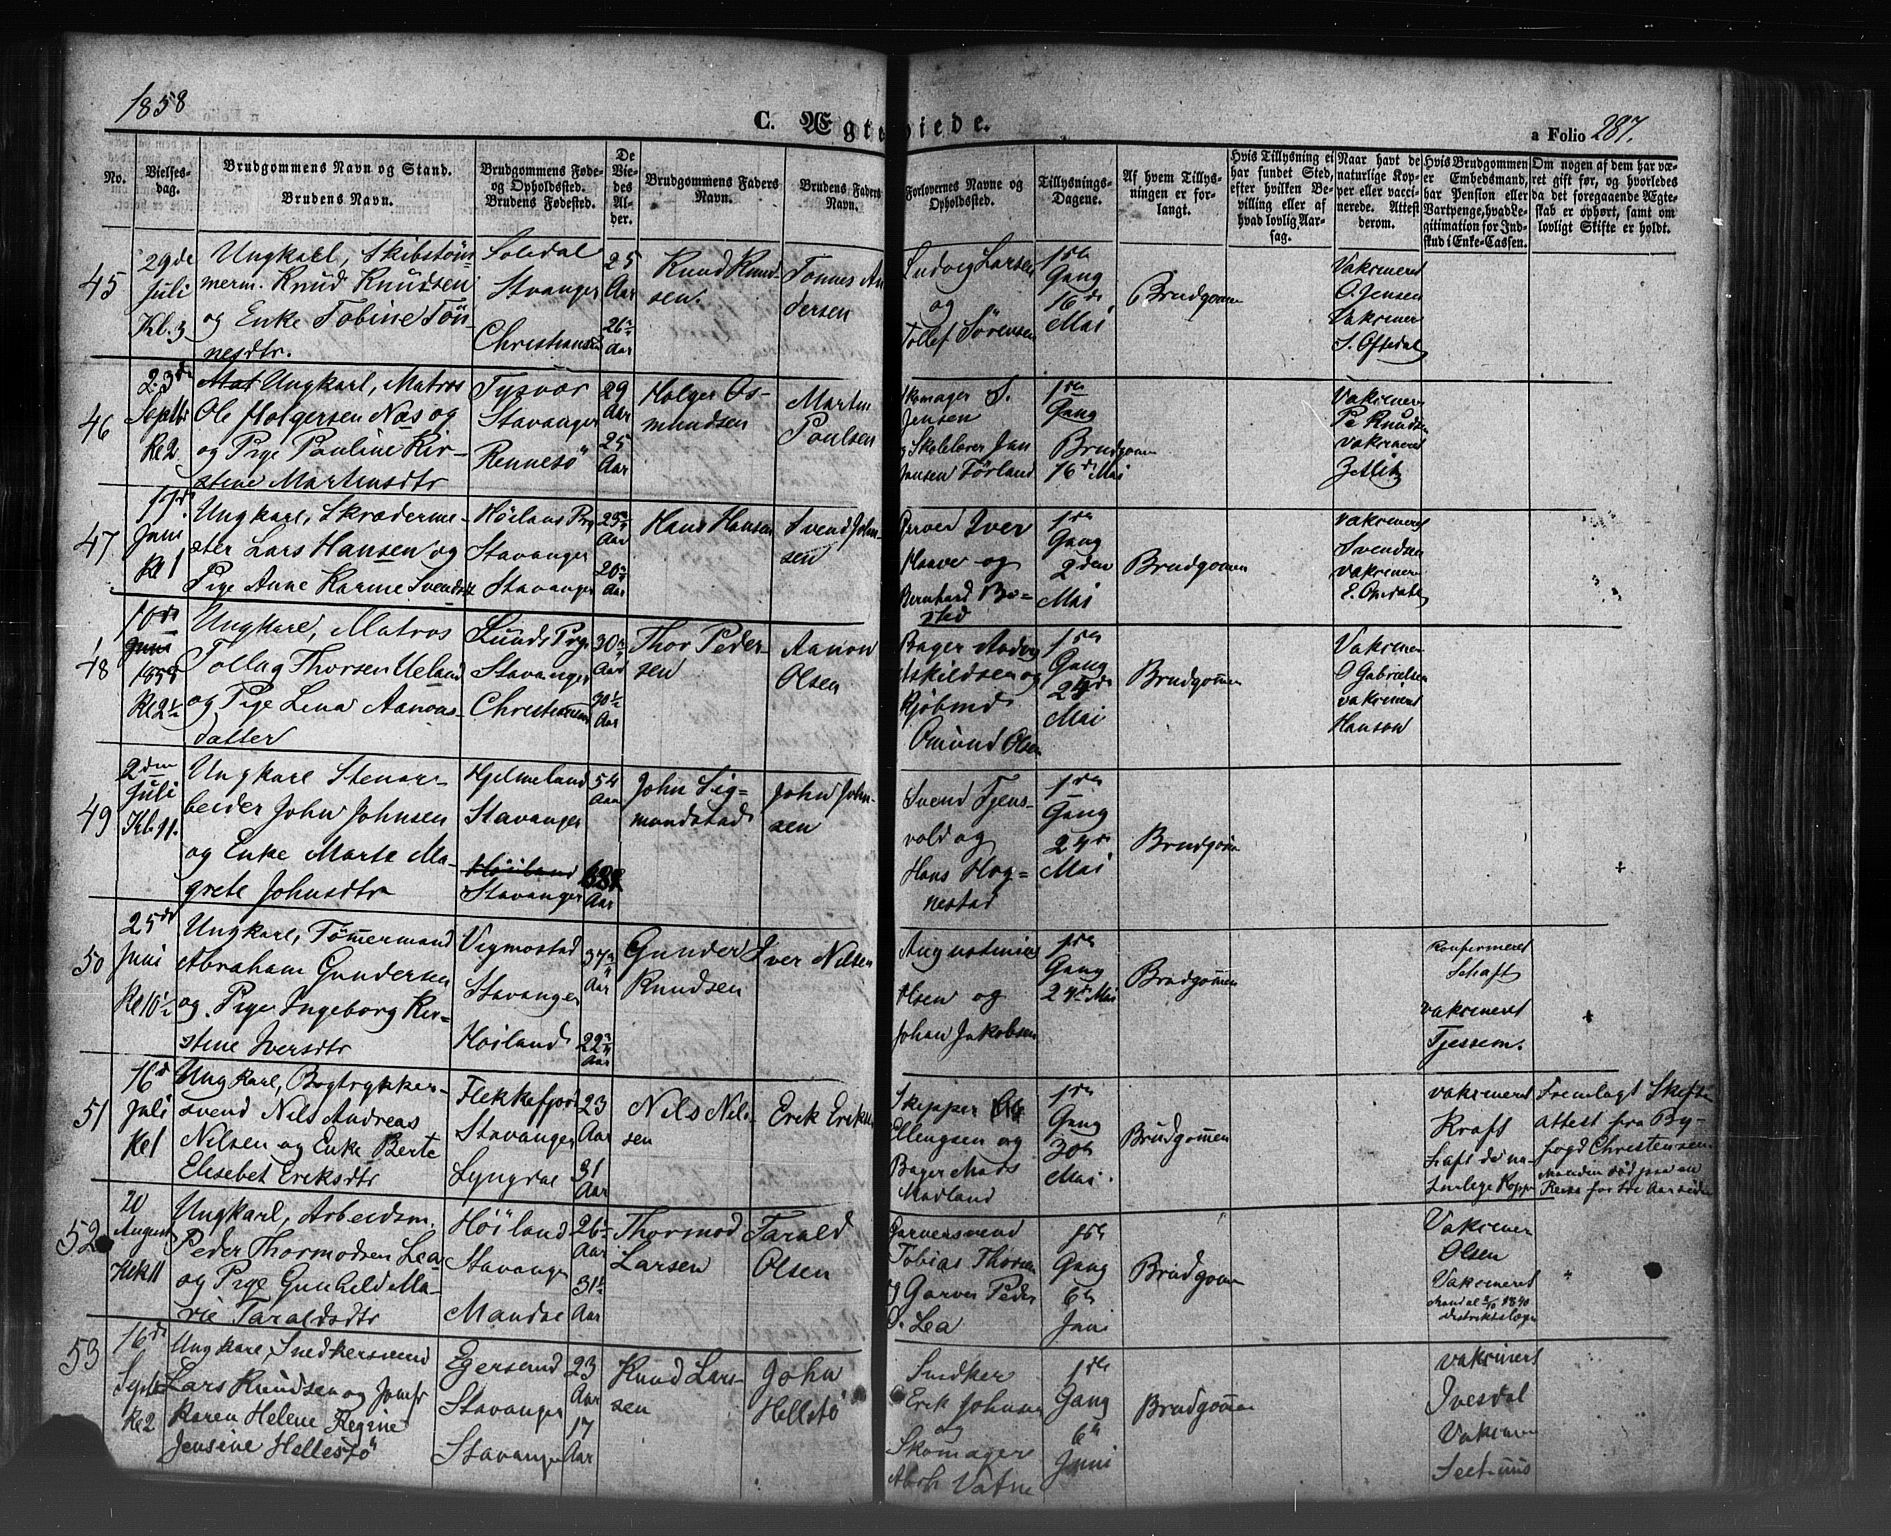 1858
C. Ægteviede.
a Folio 287.
No.
Vielses-
dag.
Brudgommens Navn og Stand.
Brudens Navn.
Brudgommens Føde-
og Opholdssted.
Brudens Fødested.
De
Vie-
des
Al-
der.
Brudgommens Faders
Navn.
Brudens Faders
Navn.
Forlovernes Navne og
Opholdssted.
Tillysnings-
Dagene.
Af hvem Tillys-
ningen er for-
langt.
Hvis Tillysning ei
har fundet Sted,
efter hvilken Be-
villing eller af
hvad lovlig Aar-
sag.
Naar havt de
naturlige Kop-
per eller vacci-
nerede. Attest
derom.
Hvis Brudgommen
er Embedsmand,
har Pension eller
Vartpenge, hvad Le-
gitimation for Ind-
skud i Enke-Cassen.
Om nogen af dem har væ-
ret gift før, og hvorledes
da det foregaaende Ægte-
skab er ophørt, samt om
lovligt Skifte er holdt.
45
29de
Juli
Kl. 3
Ungkarl, Skibstøm-
merm. Knud Knudsen
og Enke Tobine Tøn-
nesdtr.
Soledal
Stavanger
Christiansd
25
Aar
26
Aar
Knud Knud-
sen.
Tønnes An
dersen
Ludvig Larsen
og
Tollef Sørensen
1ste
Gang
16de
Mai
Brudgommen
Vaksineret
O. Jensen
Vaksiner
S. Oftedal
46
23de
Septbr
Kl 2
Mat Ungkarl, Matros
Ole Holgersen Næs og
og Pige Pauline Kir-
stine Martinsdtr
Tysvær
Stavanger
Rennesø
29
Aar
25
Aar
Holger Os-
mundsen
Martin
Poulsen
Skomager S.
Jensen
og Skolelærer Jan
Jansen Førland
1ste
Gang
Brudgommen
16de Mai
Vaksiner
P Knudsen
vaksineret
Zetlitz
47
17de
Juni
Kl 1
Ungkarl, Skrædderme-
ster Lars Hansen og
Pige Anne Karine Svendsdt
Høilands Prg
Stavanger
Stavanger
25
Aar
20
Aar
Hans Hansen
Svend John-
sen
Iver
Haaver og
Bernhard Bø-
sted
1ste
Gang
2den
Mai
Brudgommen
vaksineret
Svendsen
vaksiner
48
10de
Juni
1858
Kl 2½
Ungkarl, Matros
Tollag Thorsen Ueland
og Pige Lena Aanons-
datter
Lunds Prg
Stavanger
Christiansand
30
Aar
30½
Aar
Thor Peder-
sen
Aanon
Olsen
Bager Andreas
Askildsen og
Kjøbmd
Omund Olsen
1ste
Gang
24de
Mai
Brudgommen
Vaksiner
O Gabrielsen
vaksineret
Hanson
49
2den
Juli
Kl. 11.
Ungkarl Stenar-
beider John Johnsen
og Enke Marte Ma-
grete Johnsdtr
Hjelmeland
Stavanger
Høiland
Stavanger
54
Aar
Aar
John Sig-
mundstad
John John-
sen
Svend Tjens-
vold og
Hans Hog-
nestad
1ste
Gang
24de
Mai
Brudgommen
50
25de
Juni
Kl 10½
Ungkarl, Tømmermand
Abraham Gundersen
og Pige Ingeborg Kir-
stine Iversdtr
Vigmostad
Stavanger
Høiland
37
Aar
22
Aar
Gunder
Knudsen
Iver Nilsen
Augustinius
Olsen og
Johan Jakobsen
1ste
Gang
24de Mai
Brudgommen
Konfirmeret
Schaft
vaksineret
Tjessem.
51
16de
Juli
Kl 1
Ungkarl, Bogtrykker-
svend Nils Andreas
Nilsen og Enke Berte
Elisebet Eriksdtr
Flekkefjord
Stavanger
Lyngdal
23
Aar
31
Aar
Nils Nil-
sen
Erik Eriksen
Skipper Ole
Ellingsen og
Bager Mads
Madland
1ste
Gang
30te
Mai
Brudgommen
vaksineret
Kraft
haft de na-
turlige Kopper
Fremlagt Skifte
attest fra By-
fogd Christensen
Manden død paa en
Reise for tre Aar siden
52
20
August
Kl 11
Ungkarl, Arbeidsm.
Peder Thormodsen Lea
og Pige Gunhild Ma-
rie Taraldsdtr
Høiland
Stavanger
Mandal
26
Aar
31
Aar
Thormod
Larsen
Tarald
Olsen
Garversvend
Tobias Thorsen
og Garver Peder
O. Lea
1ste
Gang
6te
Juni
Brudgommen
Vaksiner
Olsen
Vaksineret
Mandal 1840
distriktslæge
53
16de
Septbr
Kl 2
Ungkarl, Snedkersvend
Lars Knudsen og Jomfr
Karen Helene Regine
Jensine Hellestø
Egersund
Stavanger
Stavanger
23
Aar
17
Aar
Knud Lar-
sen
John
Hellestø
Snedker
Erik Johnsen
og
Skomager
Vatne
1ste
Gang
6te
Juni
Brudgommen
vaksineret
Ivesdal
Vaksiner